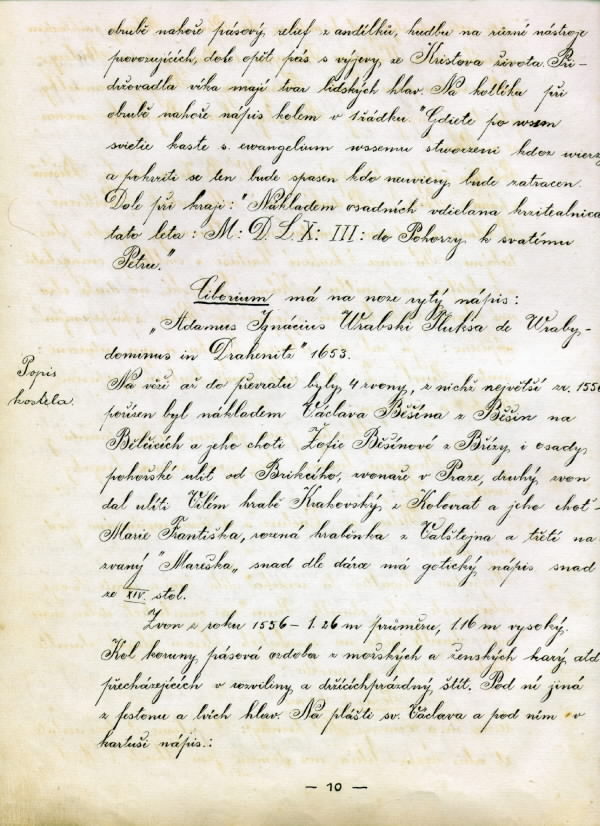 obrubě nahoře pásový relief z andílků, hudbu na různé nástroje
provozujících, dole opět pás s výjevy ze Kristova života. Při-
držovadla víka mají tvar lidských hlav. Na kotlíku při
obrubě nahoře nápis kolem v 1 řádku. "Gdiete po wssem
svietie kaste s. ewangelium wssemu stworzeni kdoz wierzy
a pokrzti se ten bude spasen kdo newierzy, bude zatracen.
Dole při kraji: "Nákladem osadních vdielana krzitedlnica
tato leta: M: D. L. X: III: do Pohorzy k svatému
Petru."
Ciborium má na noze rytý nápis:
„Adamus Ignácius Wrabski Tluksa de Wraby,
dominus in Drahenitz" 1653.
Popis
kostela.
Na věži až do převratu byly 4 zvony, z nichž největší zr. 1556
pořízen byl nákladem Václava Běšína z Běšin na
Bělčicích a jeho choti Žofie Běšínové z Břízy i osady
pohorské ulit od Brikcího, zvonaře v Praze, druhý zvon
dal ulíti Vilém hrabě Krakovský z Kolovrat a jeho choť -
Marie Františka, rozená hraběnka z Valštejna a třetí na
zvaný "Mareška„ snad dle dárce má gotický nápis snad
ze XIV. stol.
Zvon z roku 1556 - 1.26 m průměru, 1.16 m vysoký.
Kol koruny pásová ozdoba z mořských a ženských
přecházejících v rozviliny a držících prázdný štít. Pod ní jiná
z festonu a lvích hlav. Na plášti sv. Václava a pod ním v
kartuši nápis.:
- 10 -